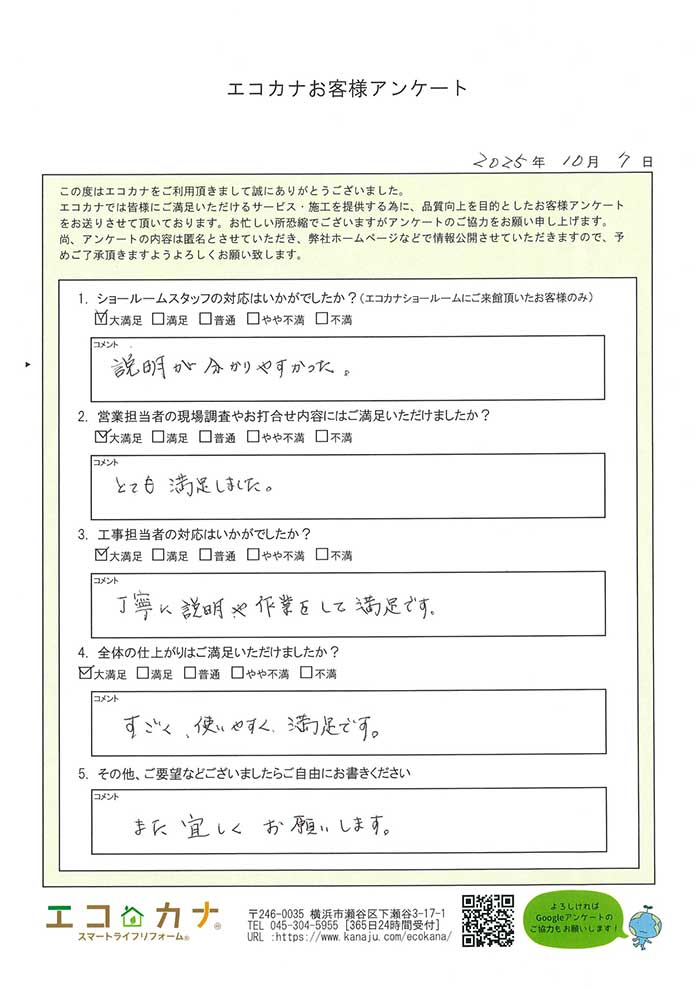 エコカナお客様アンケート
2025年 10月 7日
この度はエコカナをご利用頂きまして誠にありがとうございました。
エコカナでは皆様にご満足いただけるサービス・施工を提供する為に、品質向上を目的としたお客様アンケート
をお送りさせて頂いております。お忙しい所恐縮でございますがアンケートのご協力をお願い申し上げます。
尚、アンケートの内容は匿名とさせていただき、弊社ホームページなどで情報公開させていただきますので、予
めご了承頂きますようよろしくお願い致します。
1. ショールームスタッフの対応はいかがでしたか？(エコカナショールームにご来館頂いたお客様のみ)
☑大満足 □満足 □普通 □やや不満 □不満
コメント
説明が分かりやすかった。
2. 営業担当者の現場調査やお打合せ内容にはご満足いただけましたか？
☑大満足 □満足 □普通 □やや不満 □不満
コメント
とても満足しました。
3. 工事担当者の対応はいかがでしたか？
☑大満足 □満足 □普通 □やや不満 □不満
コメント
丁寧に説明や作業をして満足です。
4. 全体の仕上がりはご満足いただけましたか？
☑大満足 □満足 □普通 □やや不満 □不満
コメント
すごく、使いやすく、満足です。
5. その他、ご要望などございましたらご自由にお書きください
コメント
また宜しくお願いします。
エコカナ®
スマートライフリフォーム®
〒246-0035 横浜市瀬谷区下瀬谷3-17-1
TEL 045-304-5955 [365日24時間受付]
URL :https://www.kanaju.com/ecokana/
よろしければ
Googleアンケートの
ご協力もお願いします！